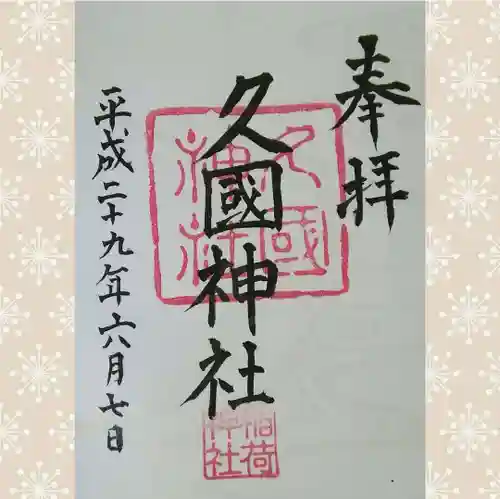 奉拝
久國神社
久國神社
稲荷神社
平成二十九年六月七日